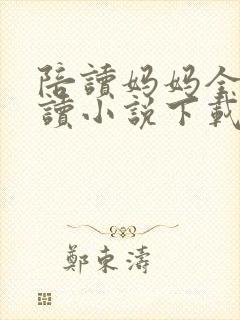 陪讀媽媽全
讀小說下載
鄭東濤